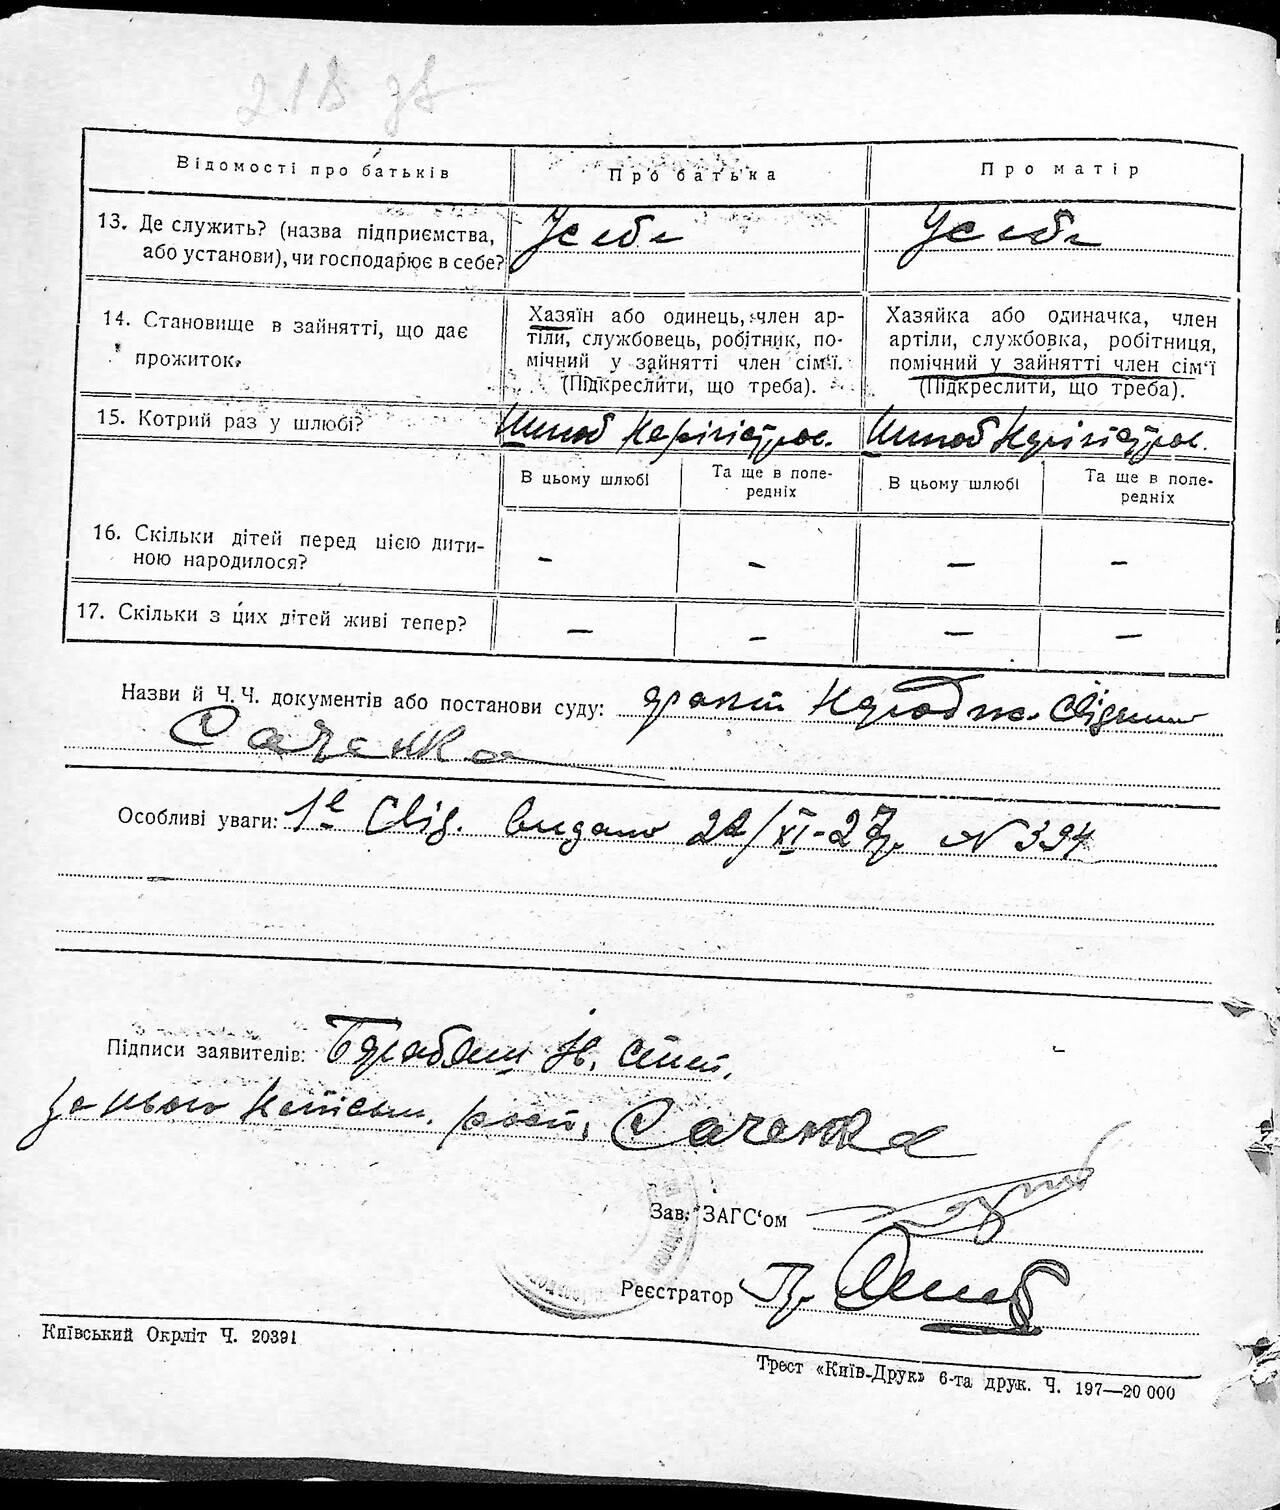 218 зв
Відомості про батьків
Про батька
Про матір
13. Де служить? (назва підприємства,
або установи), чи господарює в себе?
У себе
У себе
14. Становище в зайнятті, що дає
прожиток.
Хазяїн або одинець, член ар-
тіли, службовець, робітник, по-
мічний у зайнятті член сім'ї.
(Підкреслити, що треба).
Хазяйка або одиначка, член
артіли, службовка, робітниця,
помічний у зайнятті член сім'ї
(Підкреслити, що треба).
15. Котрий раз у шлюбі?
Шлюб
Шлюб
В цьому шлюбі
Та ще в попе-
редніх
В цьому шлюбі
Та ще в попе-
редніх
16. Скільки дітей перед цією дити-
ною народилося?
– – – –
17. Скільки з цих дітей живі тепер?
– – – –
Назви й Ч. Ч. документів або постанови суду:
Саченка
Особливі уваги: 1е Свід. видано 22/XI-27р. N 394
Підписи заявителів: Барабаш
за нього розп. Саченка
Зав. ЗАГС'ом
Реєстратор
Київський Окрліт Ч. 20391
Трест «Київ-Друк» 6-та друк. Ч. 197—20 000